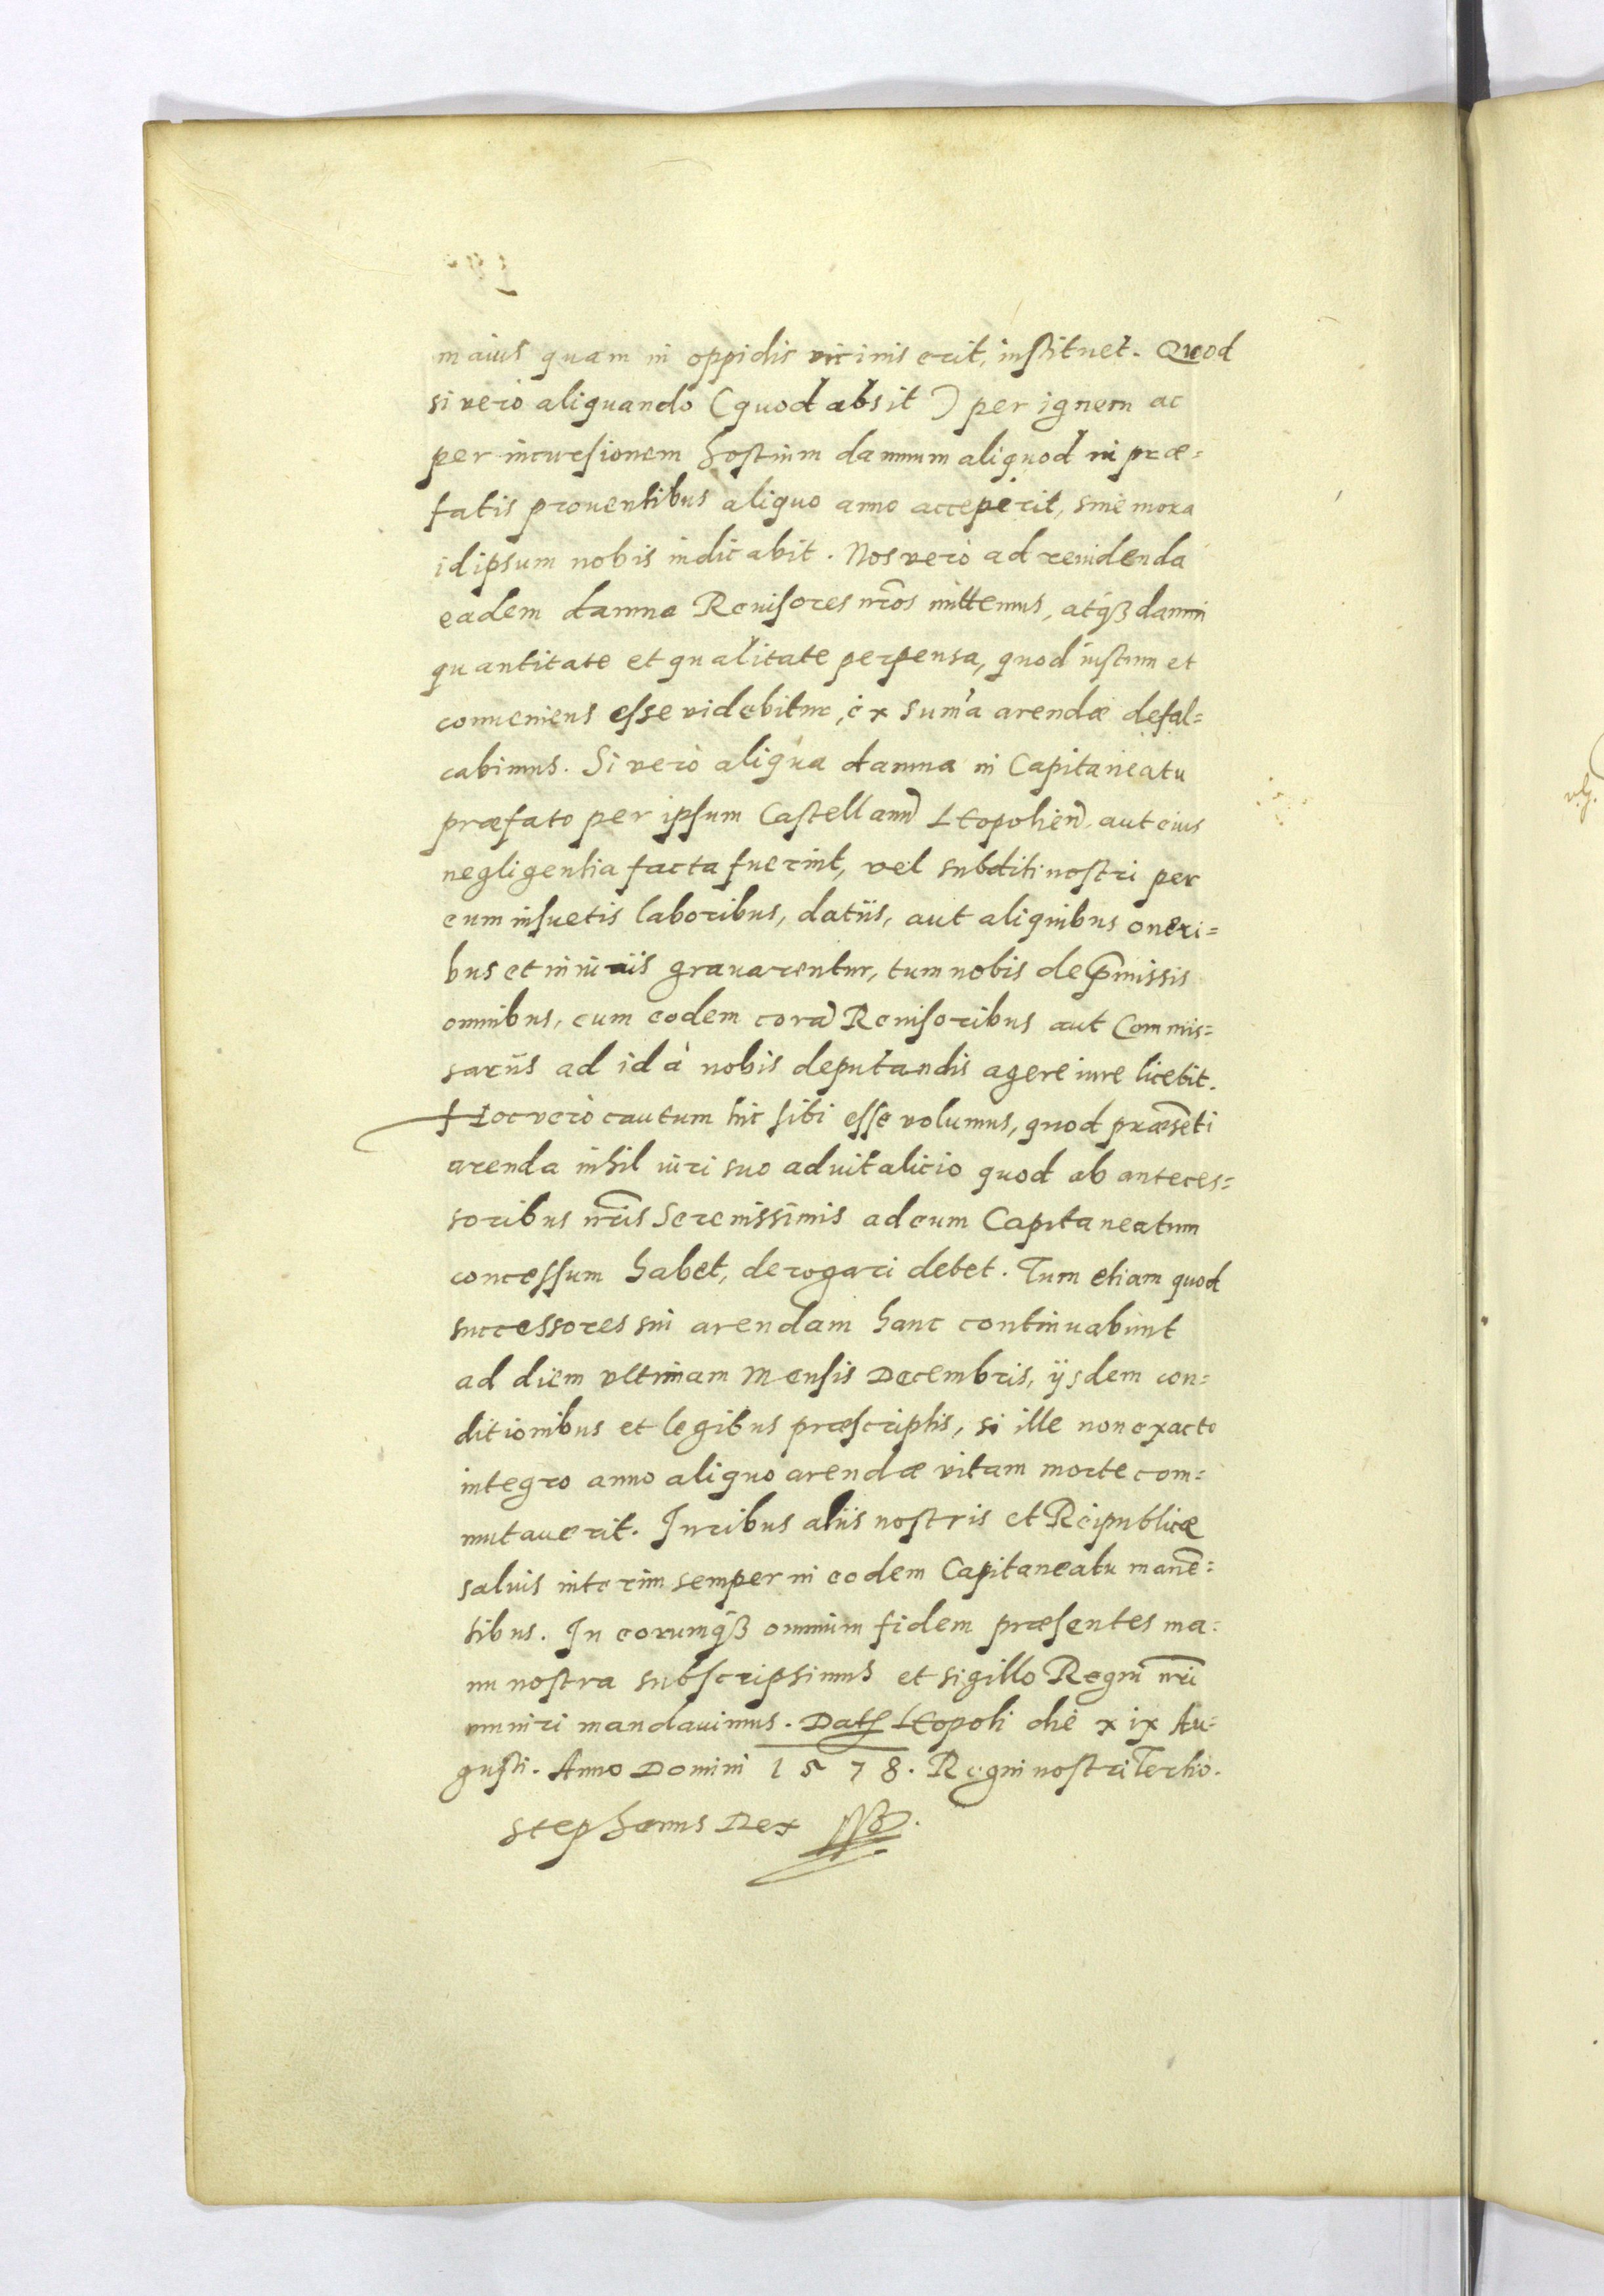 maius quam in oppidis vicinis erit, instituet. Quod
si verò aliquando (quod absit) per ignem ac
per incursionem hostium damnum aliquod in præ=
fatis prouentibus aliquo anno acceperit, sine mora
id ipsum nobis indicabit. Nos verò ad reuidenda
eadem damna Reuisores nr̃os mittemus, atq́ꝫ damni
quantitate et qualitate perpensa, quod iustum et
conueniens esse videbitur, ex sum̃a arendæ defal=
cabimus. Si verò aliqua damna in Capitaneatu
præfato per ipsum Castellanũ Leopolień. aut eius
negligentia facta fuerint, vel subditi nostri per
eum insuetis laboribus, datiis, aut aliquibus oneri=
bus et iniuriis grauarentur, tum nobis de p̃missis
omnibus, cum eodem corã Reuisoribus aut Commis=
sariis ad id à nobis deputandis agere iure licebit.
Hoc verò cautum hic sibi esse volumus, quod præsẽti
arenda nihil iuri suo aduitalicio quod ab anteces=
soribus nr̃is Serenissimis ad eum Capitaneatum
concessum habet, derogari debet. Tum etiam quod
successores sui arendam hanc continuabunt
ad diem vltimam Mensis Decembris, ijsdem con=
ditionibus et legibus præscriptis, si ille non exacto
integro anno aliquo arendæ vitam morte com=
mutauerit. Iuribus aliis nostris et Reipublicæ
saluis interim semper in eodem Capitaneatu manẽ=
tibus. In eorumq́ꝫ omnium fidem præsentes ma=
nu nostra subscripsimus et sigillo Regni nr̃i
muniri mandauimus. Datꝭ Leopoli die xix Au=
gusti. Anno Domini 1578. Regni nostri Tertio.
Stephanus Rex